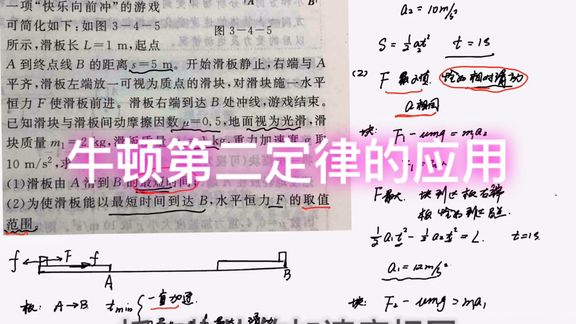 一项“快乐向前冲”的游戏
可简化如下:如图 3-4-5
图 3-4-5
所示,滑板长 L=1 m,起点
A 到终点线 B 的距离 s=5 m。开始滑板静止,右端与 A
平齐,滑板左端放一可视为质点的滑块,对滑块施一水平
恒力 F 使滑板前进。滑板右端到达 B 处冲线,游戏结束。
已知滑块与滑板间动摩擦因数 μ=0.5,地面视为光滑,滑
块质量 m₁
10 m/s²,求
(1)滑板由 A 滑到 B 的最短时间;
(2)为使滑板能以最短时间到达 B,水平恒力 F 的取值
范围。
牛顿第二定律的应用
f F f
A B
板: A→B tmin 一直加速
a₂=10m/s²
S=½at² t=1s
(2) F 最小值 恰好相对滑动
a相同
块: F₁-umg=ma₂
F最大. 块到达板右端
½a₁t²-½a₂t²=L. t=1s.
a₁=12m/s²
块: F₂-umg=ma₁